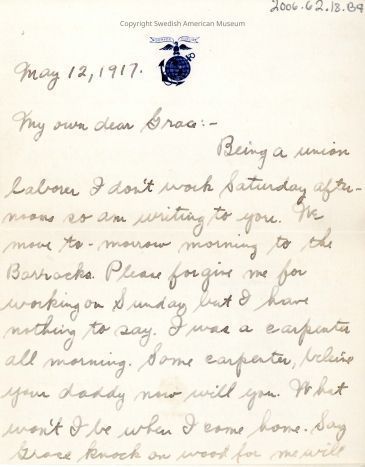 2006.62.18.B9
Copyright Swedish American Museum
May 12, 1917.
My own dear Grace:-
Being a union
laborer I don't work Saturday after-
noons so am writing to you. We
move to-morrow morning to the
Barracks. Please forgive me for
working on Sunday but I have
nothing to say. I was a carpenter
all morning. Some carpenter, believe
your daddy now will you. What
won't I be when I come home. Say
Grace knock on wood for me will